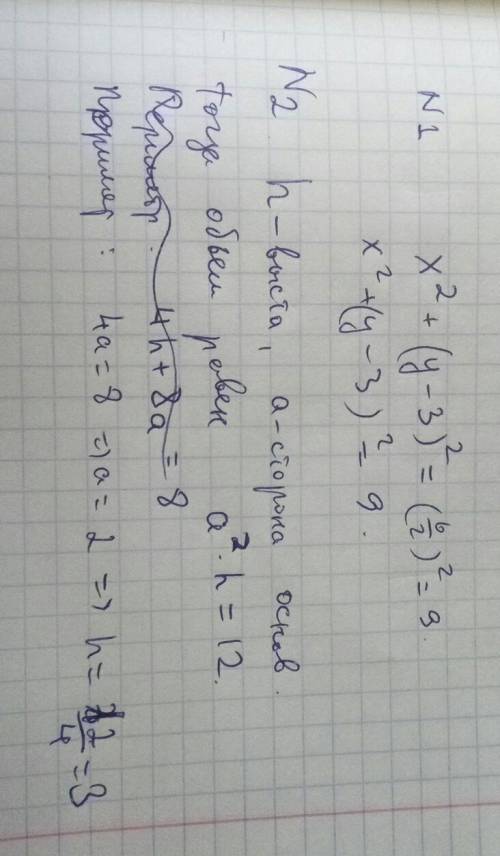 N1 x² + (y - 3)² = (6/2)² = 9.
x² + (y - 3)² = 9.
N2 h - выста, а - сторона основ.
Тогда объем равен a² · h = 12.
Периметр: 4h + 8a = 8
Пример: 4a = 8 => a = 2 => h = 12/4 = 3